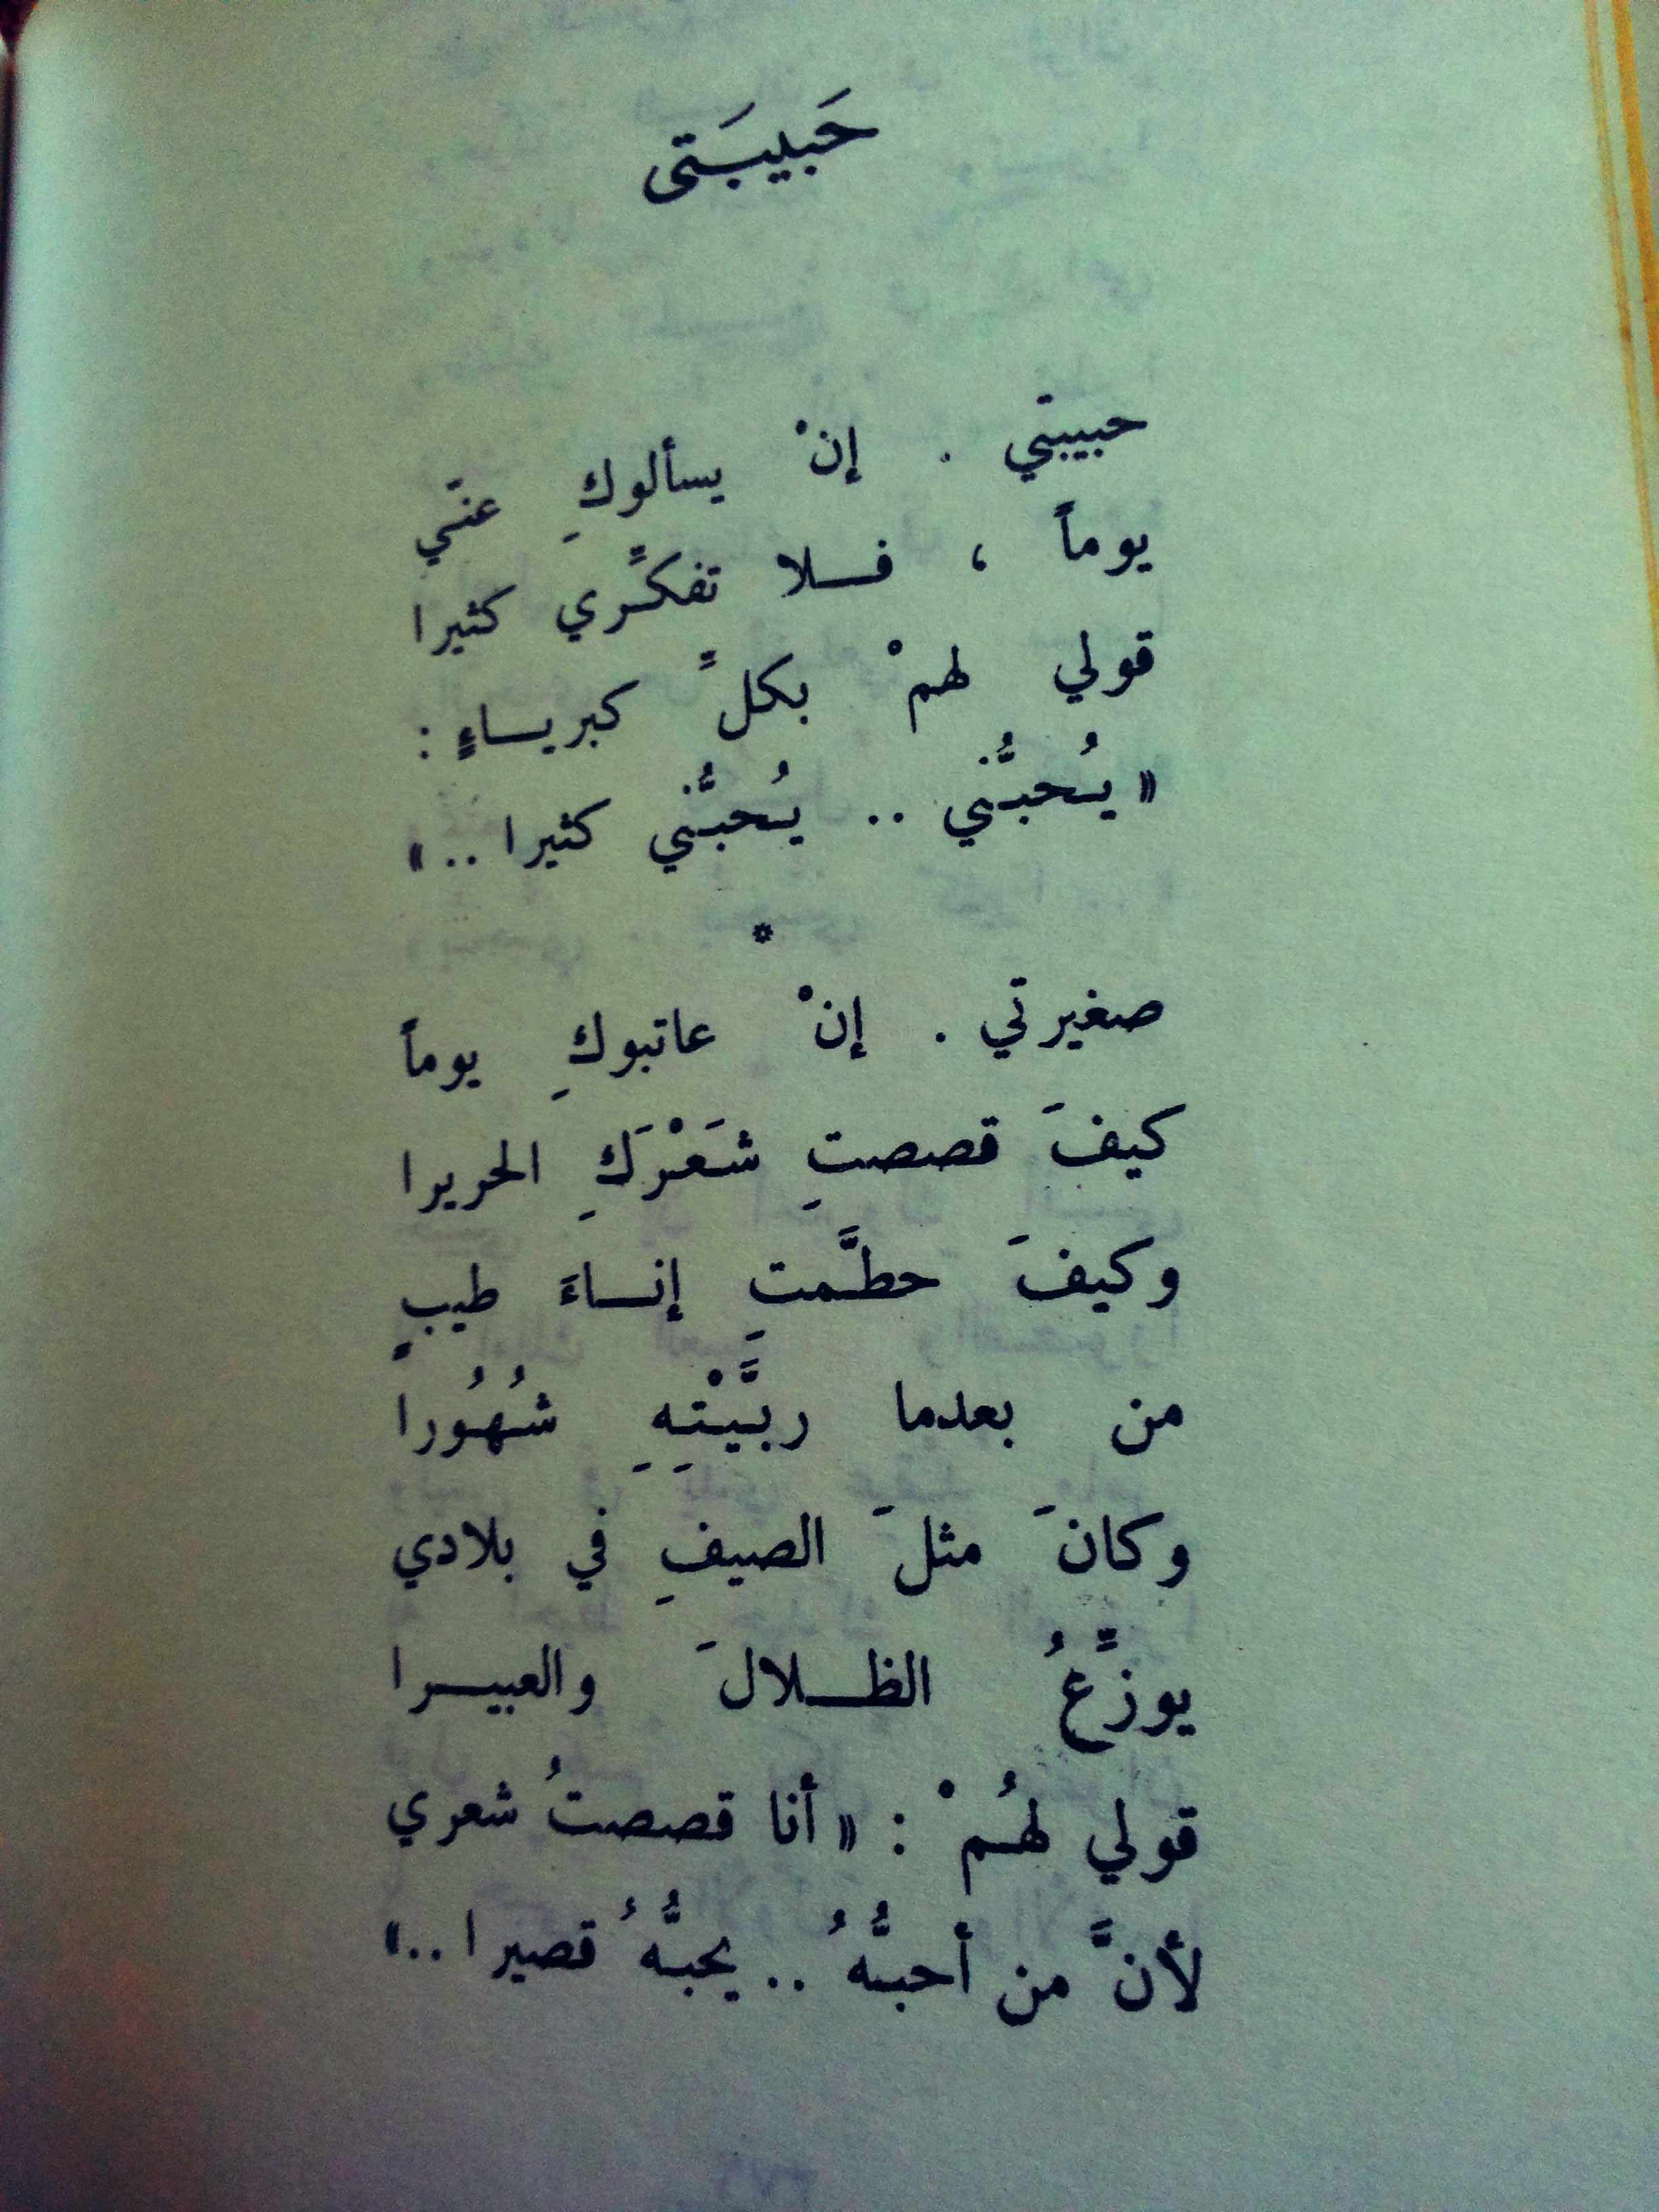 حَبيبَتى
حبيبتي . إنْ يسألوكِ عنّي
يوماً ، فـلا تفكِّري كثيرا
قولي لهمْ بكلِّ كبريـاءٍ :
« يُحبُّني .. يُحبُّني كثيرا .. »
*
صغيرتي . إنْ عاتبوكِ يوماً
كيفَ قصصتِ شَعْرَكِ الحريرا
وكيفَ حطَّمتِ إنـاءَ طيبٍ
من بعدما ربَّيْتِهِ شُهُورا
وكانَ مثلَ الصيفِ في بلادي
يوزِّعُ الظـلالَ والعبيـرا
قولي لهُمْ : « أنا قصصتُ شعري
لأنَّ من أحبُّهُ .. يحبُّهُ قصيرا .. »